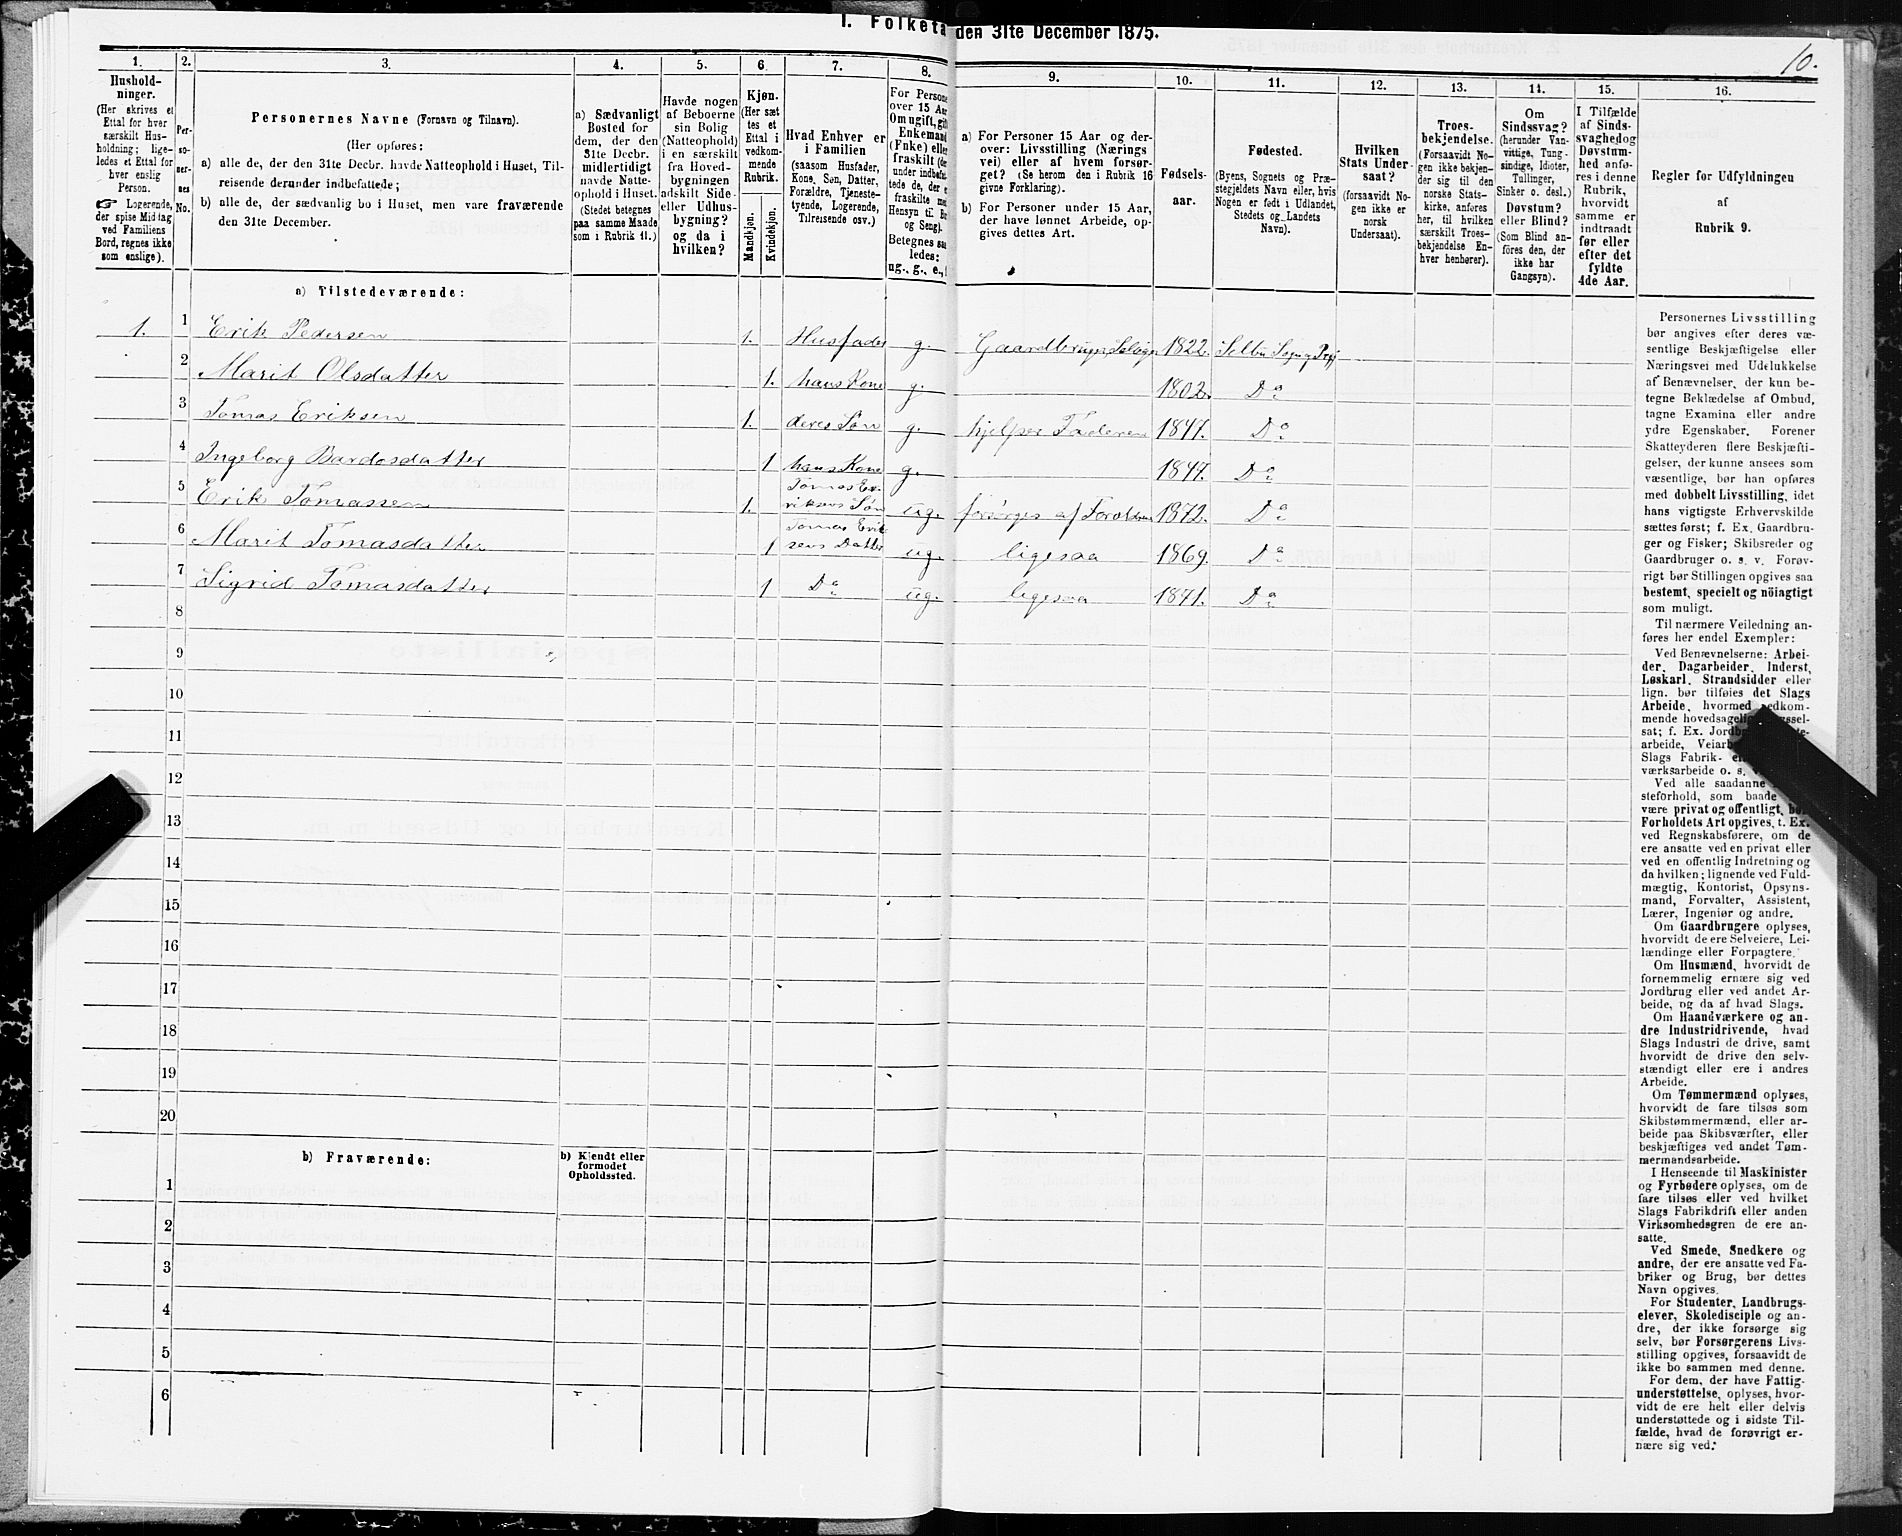 I. Folketa den 31te December 1875.
10.
1. 2. 3. 4. 5. 6. 7. 8. 9. 10. 11. 12. 13. 14. 15. 16.
Hushold-
ninger.
(Her skrives et
Ettal for hver
særskilt Hus-
holdning; lige-
ledes et Ettal for
hver enslig
Person.
☞ Logerende,
der spise Middag
ved Familiens
Bord, regnes ikke
som enslige).
Per-
so-
ner-
nes
No.
Personernes Navne (Fornavn og Tilnavn).
(Her opføres:
a) alle de, der den 31te Decbr. havde Natteophold i Huset, Til-
reisende derunder indbefattede;
b) alle de, der sædvanlig bo i Huset, men vare fraværende
den 31te December.
a) Sædvanligt
Bosted for
dem, der den
31te Decbr.
midlertidigt
havde Natte-
ophold i Huset.
(Stedet betegnes
paa samme Maade
som i Rubrik 11.)
Havde nogen
af Beboerne
sin Bolig
(Natteophold)
i en særskilt
fra Hoved-
bygningen
adskilt Side-
eller Udhus-
bygning?
og da i
hvilken?
Kjøn.
(Her sæt
tes et
Ettal i
vedkom-
mende
Rubrik.
Mandkjøn.
Kvindekjøn.
Hvad Enhver er
i Familien
(saasom Husfader,
Kone, Søn, Datter,
Forældre, Tjeneste-
tyende, Logerende,
Tilreisende osv.)
For Persone
over 15 Aar
Om ugift, gift
Enkemand
(Enke) elle
fraskilt (de
under indbefat
tede de, der e
fraskilte me
Hensyn til B
og Seng).
Betegnes saa
ledes:
ug., g., e.,
a) For Personer 15 Aar og der-
over: Livsstilling (Nærings
vei) eller af hvem forsør-
get? (Se herom den i Rubrik 16
givne Forklaring).
b) For Personer under 15 Aar,
der have lønnet Arbeide, op-
gives dettes Art.
Fødsels-
aar.
Fødested.
(Byens, Sognets og Præ-
stegjeldets Navn eller, hvis
Nogen er født i Udlandet,
Stedets og Landets
Navn).
Hvilken
Stats Under-
saat?
(forsaavidt No-
gen ikke er
norsk
Undersaat).
Troes-
bekjendelse.
(Forsaavidt No-
gen ikke bekjen-
der sig til den
norske Stats-
kirke, anføres
her, til hvilken
særskilt Troes-
bekjendelse En-
hver henhører).
Om
Sindssvag?
(herunder Van-
vittige, Tung-
sindige, Idioter,
Tullinger,
Sinker o. desl.)
Døvstum?
eller Blind?
(Som Blind an-
føres den, der
ikke har
Gangsyn).
I Tilfælde
af Sinds-
svaghed og
Døvstum-
hed anfø-
res i denne
Rubrik,
hvorvidt
samme er
indtraadt
før eller
efter det
fyldte
4de Aar.
Regler for Udfyldningen
af
Rubrik 9.
a) Tilstedeværende:
1. 1 Erik Pedersen 1. Husfader g. Gaardbruger Selveier 1822. Selbu Sogn og Prgj
2 Marit Olsdatter 1. hans Kone g. 1802. Do
3 Tomas Eriksen 1. deres Søn g. hjelper Faderen 1847. Do
4 Ingeborg Bardosdatter 1 hans Kone g. 1847. Do
5 Erik Tomassen 1. Tomas Er-
riksens Søn ug. forsørges af Forældrene 1872. Do
6 Marit Tomasdatter 1 Tomas Erik
sens Datter ug. ligesaa 1869. Do
7 Sigrid Tomasdatter 1 Do ug. ligesaa 1871. Do
8
9
10
11
12
13
14
15
16
17
18
19
20
b) Fraværende:
b) Kjendt eller
formodet
Opholdssted.
1
2
3
4
5
6
Personernes Livsstilling
bør angives efter deres væ-
sentlige Beskjæftigelse eller
Næringsvei med Udelukkelse
af Benævnelser, der kun be-
tegne Beklædelse af Ombud,
tagne Examina eller andre
ydre Egenskaber. Forener
Skatteyderen flere Beskjæfti-
gelser, der kunne ansees som
væsentlige, bør han opføres
med dobbelt Livsstilling, idet
hans vigtigste Erhvervskilde
sættes først; f. Ex. Gaardbru-
ger og Fisker; Skibsreder og
Gaardbruger o. s. v. Forøv-
rigt bør Stillingen opgives saa
bestemt, specielt og nöiagtigt
som muligt.
Til nærmere Veiledning an-
føres her endel Exempler:
Ved Benævnelserne: Arbei-
der, Dagarbeider, Inderst,
Løskarl, Strandsidder eller
lign. bør tilføies det Slags
Arbeide, hvormed edkom-
mende hovedsagelig ssel-
sat; f. Ex. Jordb te-
arbeide, Veiar
Slags Fabrik-
værksarbeide o. s.
Ved alle saadanne
steforhold, som baade
være privat og offentligt, bør
Forholdets Art opgives, t. Ex.
ved Regnskabsførere, om de
ere ansatte ved en privat eller
ved en offentlig Indretning og
da hvilken; lignende ved Fuld-
mægtig, Kontorist, Opsyns-
mand, Forvalter, Assistent,
Lærer, Ingeniør og andre.
Om Gaardbrugere oplyses,
hvorvidt de ere Selveiere, Lei-
lændinge eller Forpagtere.
Om Husmænd, hvorvidt de
fornemmelig ernære sig ved
Jordbrug eller ved andet Ar-
beide, og da af hvad Slags.
Om Haandværkere og an-
dre Industridrivende, hvad
Slags Industri de drive, samt
hvorvidt de drive den selv-
stændigt eller ere i andres
Arbeide.
Om Tømmermænd oplyses,
hvorvidt de fare tilsøs som
Skibstømmermænd, eller ar-
beide paa Skibsværfter, eller
beskjæftiges ved andet Tøm-
mermandsarbeide.
I Henseende til Maskinister
og Fyrbødere oplyses, om de
fare tilsøs eller ved hvilket
Slags Fabrikdrift eller anden
Virksomhedsgren de ere an-
satte.
Ved Smede, Snedkere og
andre, der ere ansatte ved Fa-
briker og Brug, bør dettes
Navn opgives.
For Studenter, Landbrugs-
elever, Skoledisciple og an-
dre, der ikke forsørge sig
selv, bør Forsørgerens Livs-
stilling opgives, forsaavidt de
ikke bo sammen med denne.
For dem, der have Fattig-
understøttelse, oplyses, hvor-
vidt de ere helt eller delvis
understøttede og i sidste Til-
fælde, hvad de forøvrigt er-
nære sig ved.